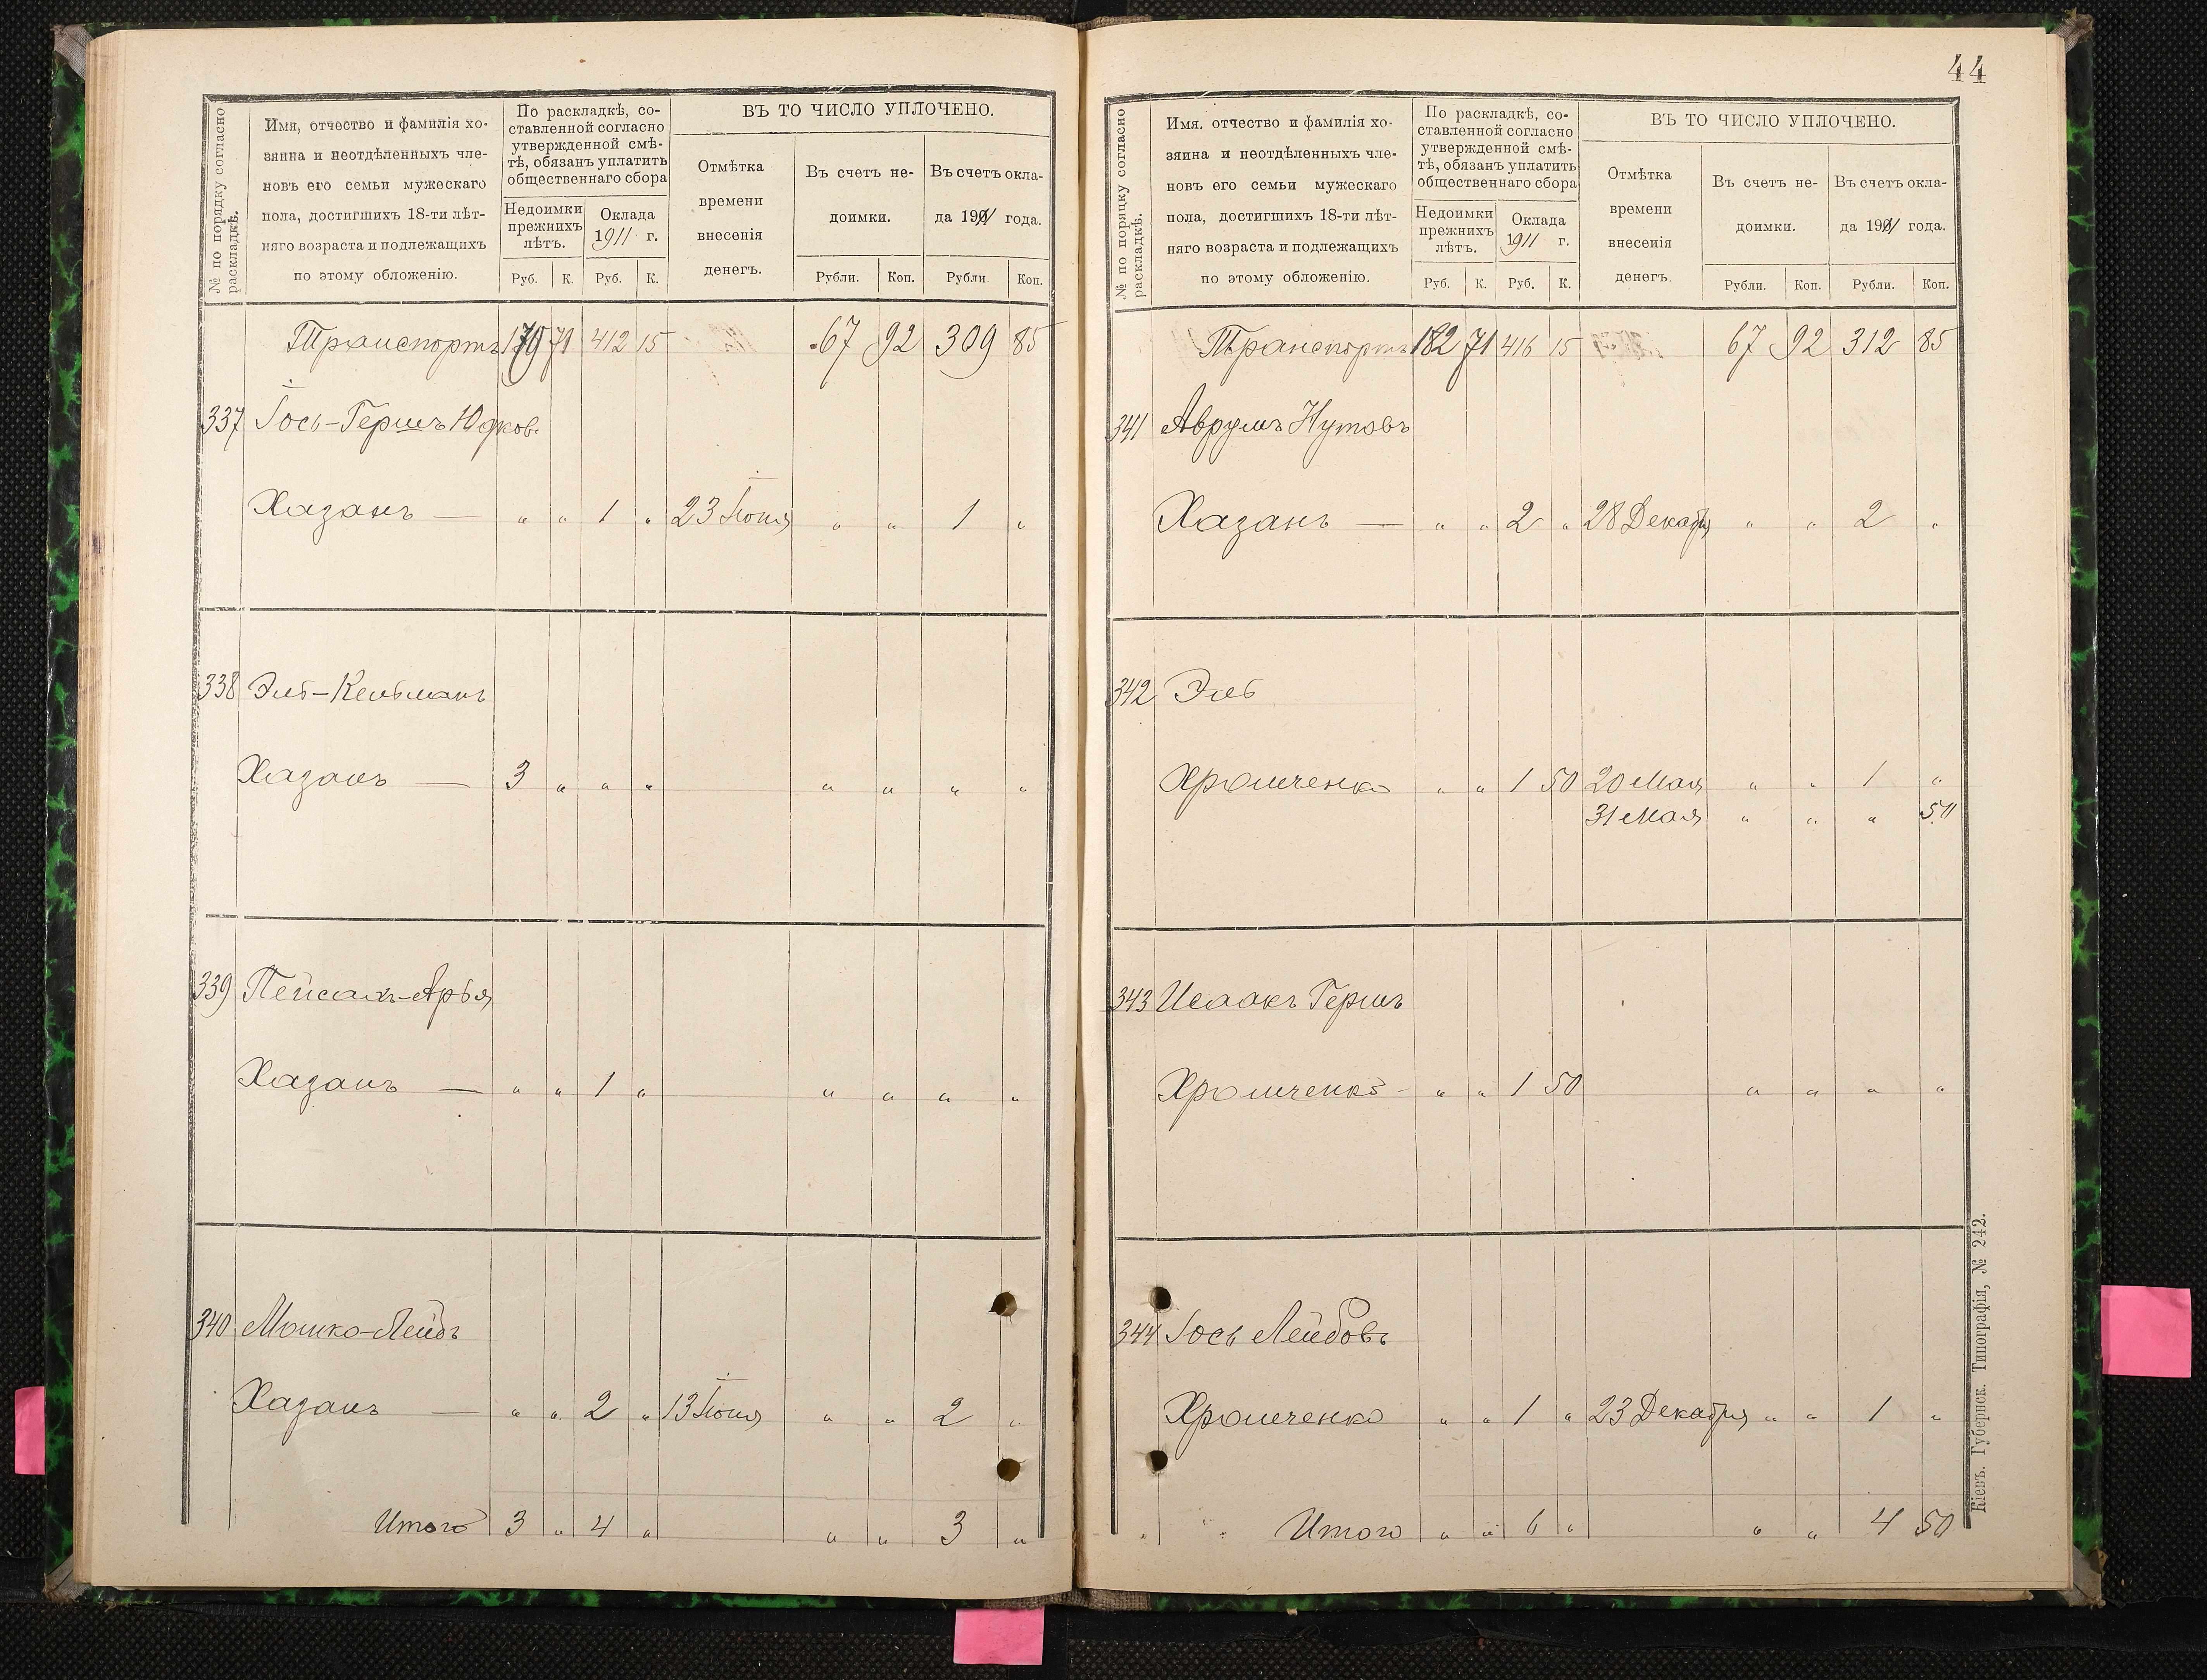 № по порядку согласно раскладкѣ.
Имя, отчество и фамилія хо-
зяина и неотдѣленныхъ чле-
новъ его семьи мужескаго
пола, достигшихъ 18-ти лѣт-
няго возраста и подлежащихъ
по этому обложенію.
По раскладкѣ, со-
ставленной согласно
утвержденной смѣ-
тѣ, обязанъ уплатить
общественнаго сбора
Недоимки
прежнихъ
лѣтъ.
Оклада
1911 г.
Руб. К. Руб. К.
ВЪ ТО ЧИСЛО УПЛОЧЕНО.
Отмѣтка
времени
внесенія
денегъ.
Въ счетъ не-
доимки.
Въ счетъ окла-
да 1911 года.
Рубли. Коп. Рубли. Коп.
Транспортъ 179 71 412 15 67 92 309 85
337 Іось-Гершъ Юдков.
Хазанъ — " " 1 " 23 Іюня " " 1 "
338 Эль-Кельманъ
Хазанъ — 3 " " " " " " "
339 Пейсахъ-Арья
Хазанъ — " " 1 " " " " "
340 Мошко-Лейбъ
Хазанъ — " " 2 " 13 Іюня " " 2 "
Итого 3 " 4 " " " 3 "
44
№ по порядку согласно раскладкѣ.
Имя. отчество и фамилія хо-
зяина и неотдѣленныхъ чле-
новъ его семьи мужескаго
пола, достигшихъ 18-ти лѣт-
няго возраста и подлежащихъ
по этому обложенію.
По раскладкѣ, со-
ставленной согласно
утвержденной смѣ-
тѣ, обязанъ уплатить
общественнаго сбора
Недоимки
прежнихъ
лѣтъ.
Оклада
1911 г.
Руб. К. Руб. К.
ВЪ ТО ЧИСЛО УПЛОЧЕНО.
Отмѣтка
времени
внесенія
денегъ.
Въ счетъ не-
доимки.
Въ счетъ окла-
да 1911 года.
Рубли. Коп. Рубли. Коп.
Транспортъ 182 71 416 15 67 92 312 85
341 Аврумъ Нутовъ
Хазанъ — " " 2 " 28 Декабря " " 2 "
342 Эль
Хромченко " " 1 50 20 Мая " " 1 "
31 Мая " " " 50
343 Исаакъ Гершъ
Хромченко - " " 1 50 " " " "
344 Іось Лейбовъ
Хромченко " " 1 " 23 Декабря " " 1 "
Итого " " 6 " " " 4 50
Кіевъ. Губернск. Типографія, № 242.